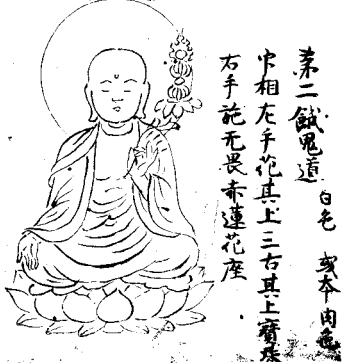 第二餓鬼道 白色 或本肉色
相左手花其上三古其上寶珠
右手施无畏赤蓮花座